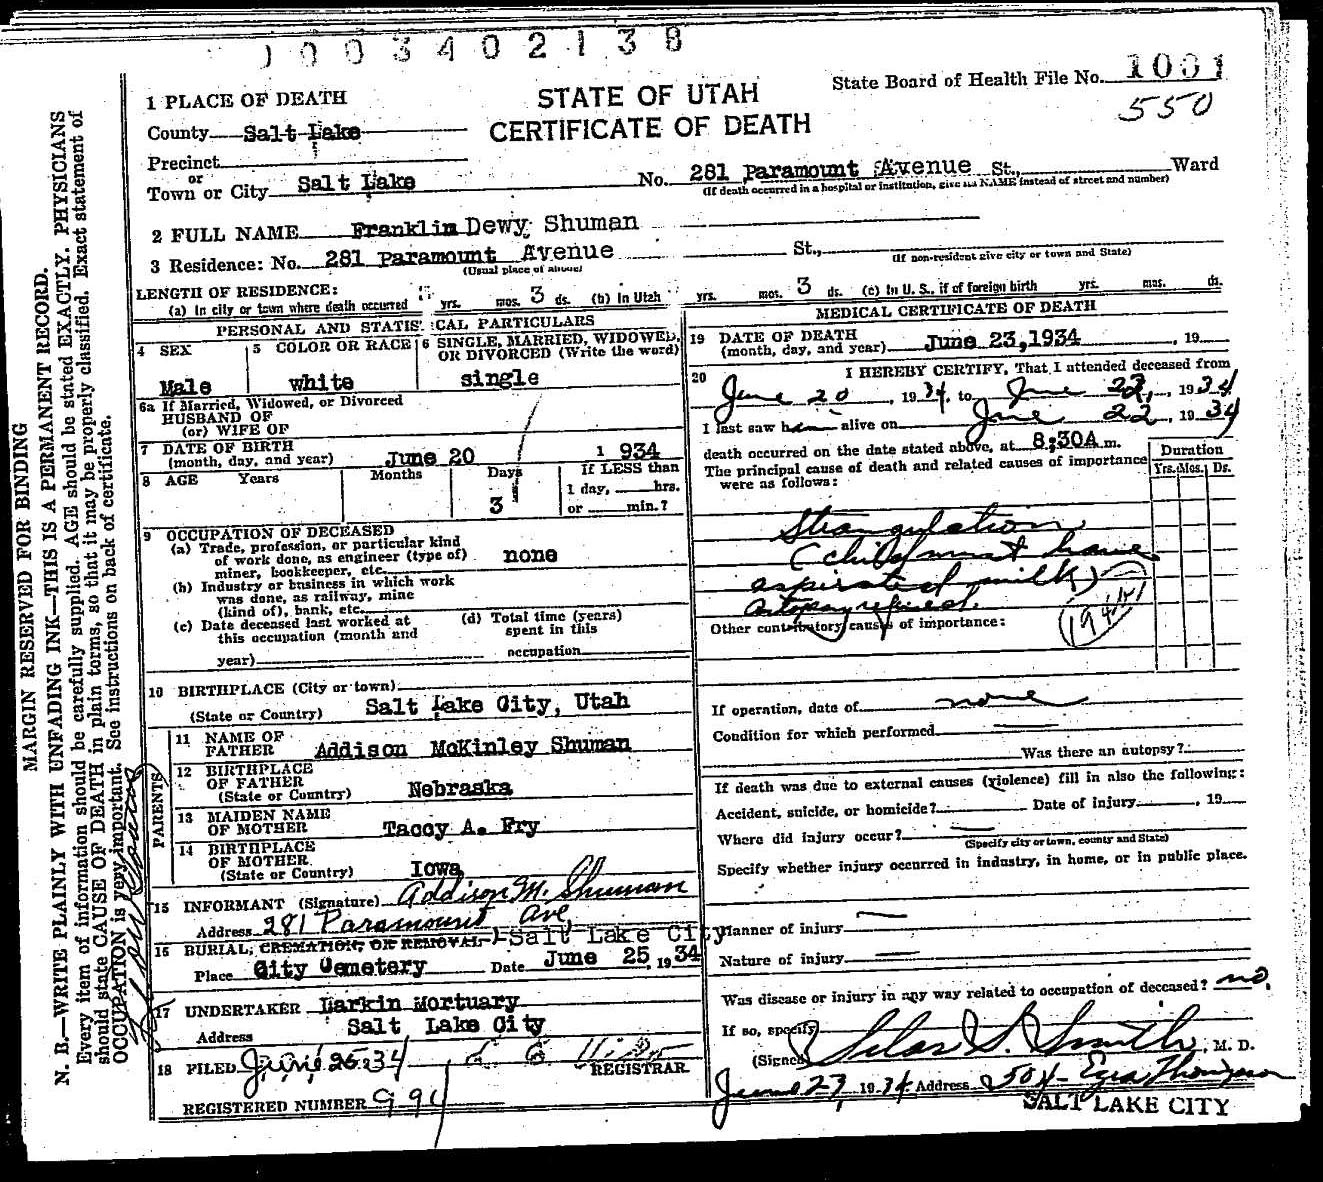 1003402138
State Board of Health File No. 1001
550
STATE OF UTAH
CERTIFICATE OF DEATH
1 PLACE OF DEATH
County Salt Lake
Precinct
or
Town or City Salt Lake No. 281 Paramount Avenue St., Ward
(If death occurred in a hospital or institution, give its NAME instead of street and number)
2 FULL NAME Franklin Dewy Shuman
3 Residence: No. 281 Paramount Avenue St.,
(Usual place of abode) (If non-resident give city or town and State)
LENGTH OF RESIDENCE:
(a) In city or town where death occurred yrs. mos. 3 ds. (b) In Utah yrs. mos. 3 ds. (c) In U. S., if of foreign birth yrs. mos. ds.
PERSONAL AND STATISTICAL PARTICULARS
4 SEX Male
5 COLOR OR RACE white
6 SINGLE, MARRIED, WIDOWED, OR DIVORCED (Write the word) single
6a If Married, Widowed, or Divorced
HUSBAND OF
(or) WIFE OF
7 DATE OF BIRTH
(month, day, and year) June 20 1934
8 AGE Years Months Days 3 If LESS than
1 day, hrs.
or min.?
9 OCCUPATION OF DECEASED
(a) Trade, profession, or particular kind
of work done, as engineer (type of)
miner, bookkeeper, etc. none
(b) Industry or business in which work
was done, as railway, mine
(kind of), bank, etc.
(c) Date deceased last worked at
this occupation (month and
year)
(d) Total time (years)
spent in this
occupation
10 BIRTHPLACE (City or town)
(State or Country) Salt Lake City, Utah
PARENTS
11 NAME OF
FATHER Addison McKinley Shuman
12 BIRTHPLACE
OF FATHER
(State or Country) Nebraska
13 MAIDEN NAME
OF MOTHER Tacey A. Fry
14 BIRTHPLACE
OF MOTHER
(State or Country) Iowa
15 INFORMANT (Signature) Addison M. Shuman
Address 281 Paramount Ave
16 BURIAL, CREMATION, OR REMOVAL Salt Lake City
Place City Cemetery Date June 25, 1934
17 UNDERTAKER Larkin Mortuary
Address Salt Lake City
18 FILED June 25 34
REGISTRAR
REGISTERED NUMBER 994
MEDICAL CERTIFICATE OF DEATH
19 DATE OF DEATH
(month, day, and year) June 23, 1934 , 19
20 I HEREBY CERTIFY, That I attended deceased from
June 20, 1934, to June 22, 1934
I last saw him alive on June 22 1934
death occurred on the date stated above, at 8:30A m.
The principal cause of death and related causes of importance
were as follows:
Duration
Yrs. Mos. Ds.
Strangulation
(child must have
aspirated milk)
autopsy refused.
Other contributory causes of importance:
If operation, date of none
Condition for which performed
Was there an autopsy?
If death was due to external causes (violence) fill in also the following:
Accident, suicide, or homicide? Date of injury , 19
Where did injury occur?
(Specify city or town, county and State)
Specify whether injury occurred in industry, in home, or in public place.
Manner of injury
Nature of injury
Was disease or injury in any way related to occupation of deceased? no.
If so, specify
(Signed) Silas S. Smith, M. D.
June 23, 1934 Address 504 Ezra Thompson
SALT LAKE CITY
MARGIN RESERVED FOR BINDING
N. B.—WRITE PLAINLY WITH UNFADING INK—THIS IS A PERMANENT RECORD.
Every item of information should be carefully supplied. AGE should be stated EXACTLY. PHYSICIANS
should state CAUSE OF DEATH in plain terms, so that it may be properly classified. Exact statement of
OCCUPATION is very important. See instructions on back of certificate.